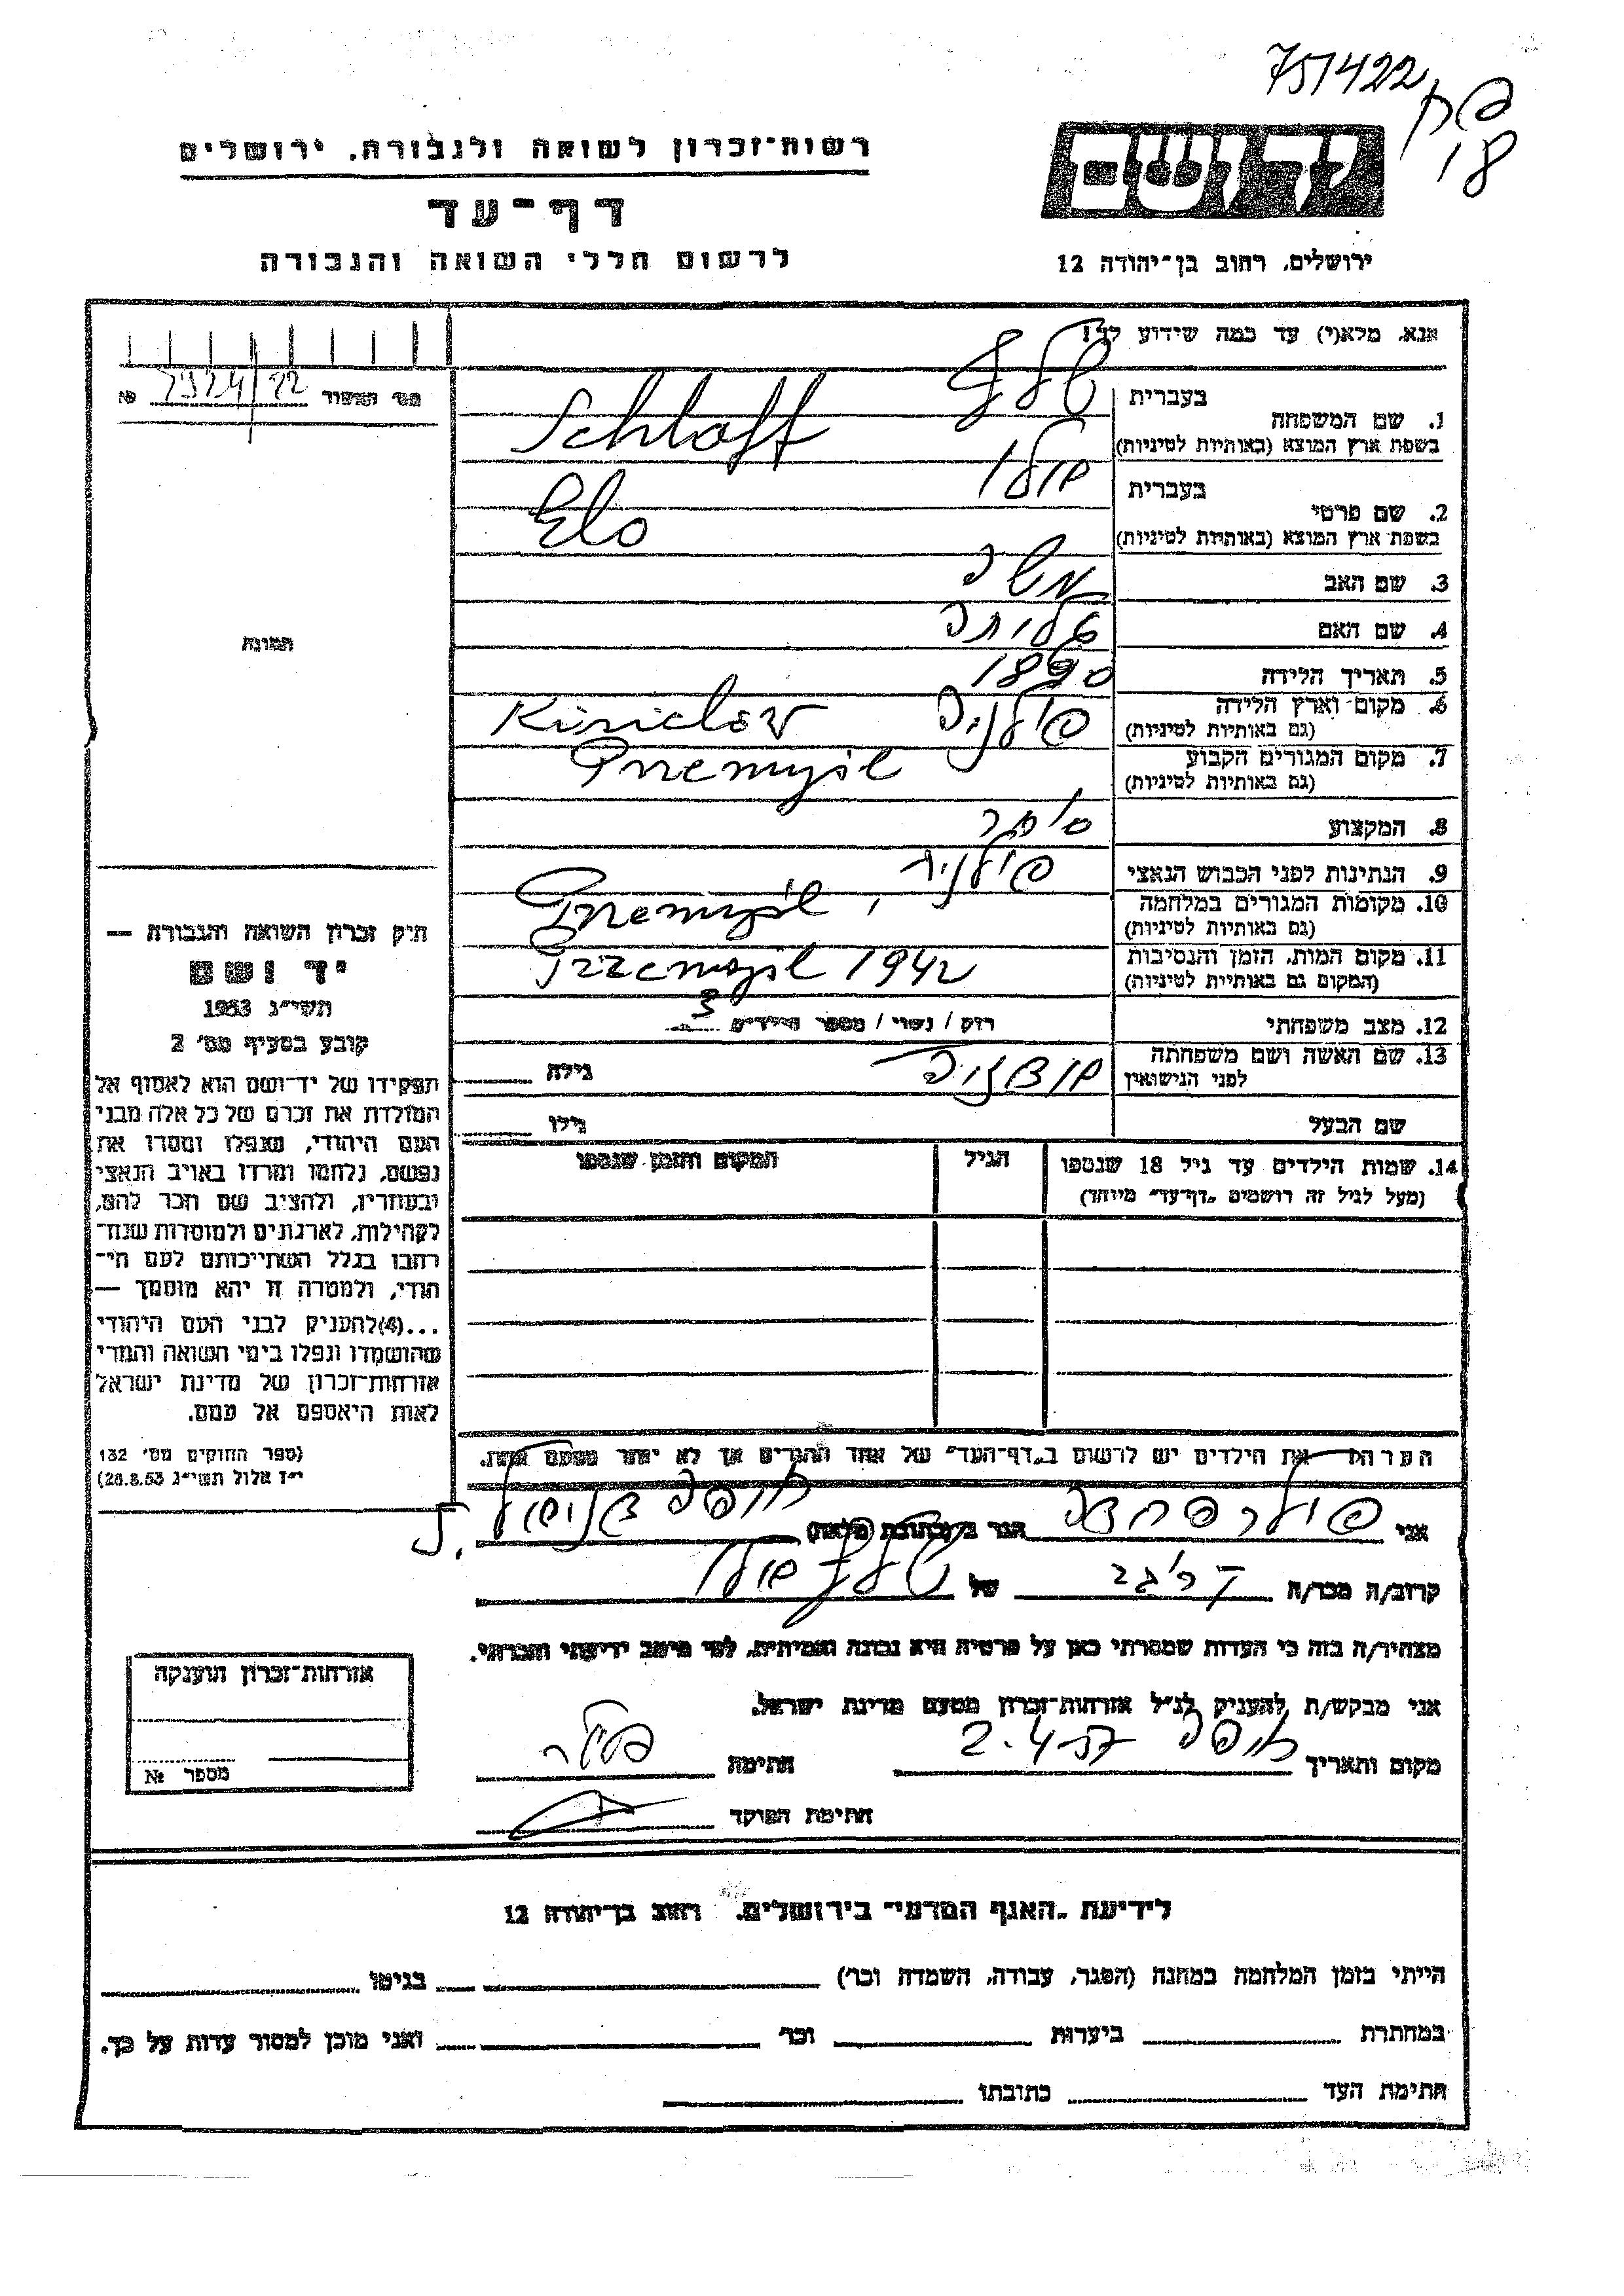 751422
18
רשות-זכרון לשואה ולגבורה. ירושלים
דף-עד
לרשום חללי השואה והגבורה
יד ושם
ירושלים, רחוב בן-יהודה 12
אנא, מלא(י) עד כמה שידוע לך!
מס' האשור №
1. שם המשפחה
בעברית שלף
בשפת ארץ המוצא (באותיות לטיניות) Schlaff
2. שם פרטי
בעברית
בשפת ארץ המוצא (באותיות לטיניות)
3. שם האב משה
4. שם האם
5. תאריך הלידה 1890
6. מקום וארץ הלידה פולניה
(גם באותיות לטיניות)
7. מקום המגורים הקבוע
(גם באותיות לטיניות) Przemyśl
8. המקצוע סוחר
9. הנתינות לפני הכבוש הנאצי פולנית
10. מקומות המגורים במלחמה
(גם באותיות לטיניות) Przemyśl,
11. מקום המות, הזמן והנסיבות
(המקום גם באותיות לטיניות) Przemyśl 1942
12. מצב משפחתי רוק / נשוי / מספר הילדים 3
13. שם האשה ושם משפחתה
לפני הנישואין
גילה
שם הבעל גילו
14. שמות הילדים עד גיל 18 שנספו
(מעל לגיל זה רושמים "דף-עד" מיוחד)
הגיל
המקום והזמן שנספו
הערה: את הילדים יש לרשום ב"דף-העד" של אחד ההורים אך לא יותר מפעם אחת.
תמונה
חוק זכרון השואה והגבורה —
יד ושם
תשי"ג 1953
קובע בסעיף מס' 2
תפקידו של יד-ושם הוא לאסוף אל
המולדת את זכרם של כל אלה מבני
העם היהודי, שנפלו ומסרו את
נפשם, נלחמו ומרדו באויב הנאצי
ובעוזריו, ולהציב שם וזכר להם,
לקהילות, לארגונים ולמוסדות שנח-
רבו בגלל השתייכותם לעם הי-
הודי, ולמטרה זו יהא מוסמך —
...(4)להעניק לבני העם היהודי
שהושמדו ונפלו בימי השואה והמרי
אזרחות-זכרון של מדינת ישראל
לאות היאספם אל עמם.
(ספר החוקים מס' 132
י"ז אלול תשי"ג 28.8.53)
אני הגר ב (כתובת מלאה)
קרוב/ה מכר/ה של שלף
מצהיר/ה בזה כי העדות שמסרתי כאן על פרטיה היא נכונה ואמיתית, לפי מיטב ידיעתי והכרתי.
אני מבקש/ת להעניק לנ"ל אזרחות-זכרון מטעם מדינת ישראל.
מקום ותאריך חיפה 2.4.57 חתימה
חתימת הפוקד
אזרחות-זכרון הוענקה
מספר №
לידיעת "האגף המדעי" בירושלים. רחוב בן-יהודה 12
הייתי בזמן המלחמה במחנה (הסגר, עבודה, השמדה וכו') בגיטו
במחתרת ביערות וכו' ואני מוכן למסור עדות על כך.
חתימת העד כתובתו